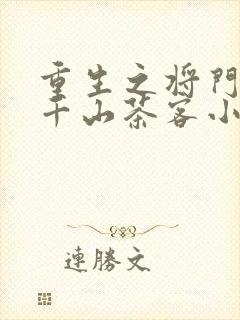 重生之将门
千山茶客小
連勝文